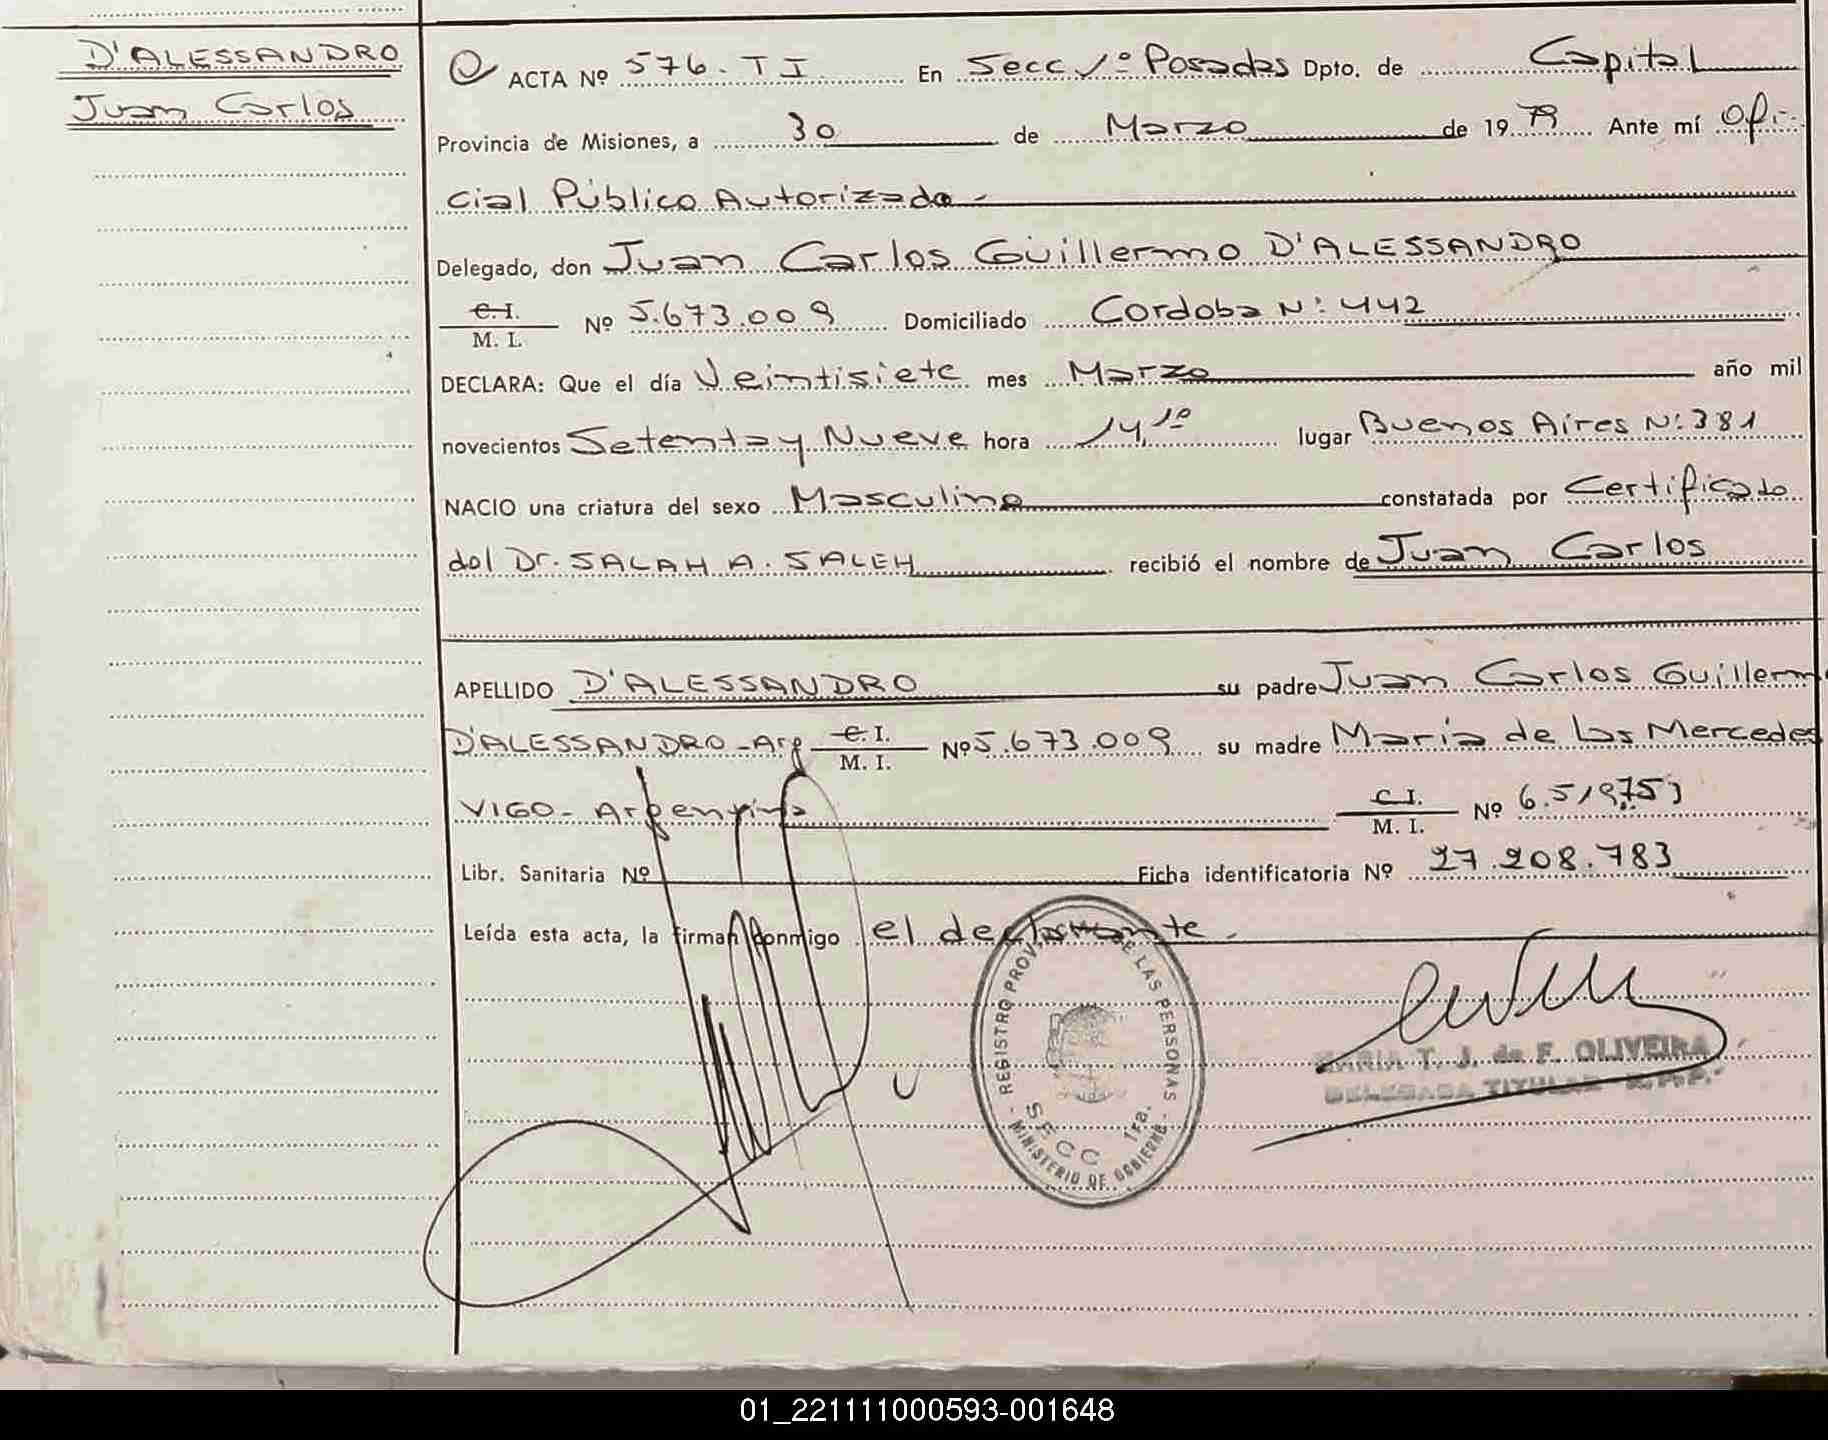 D'ALESSANDRO
Juan Carlos
ACTA Nº 576. T I En Secc 1º Posadas Dpto. de Capital
Provincia de Misiones, a 30 de Marzo de 1979 Ante mí Ofi-
cial Público Autorizado -
Delegado, don Juan Carlos Guillermo D'ALESSANDRO
C.I. / M. I. Nº 5.673.009 Domiciliado Cordoba Nº 442
DECLARA: Que el día Veintisiete mes Marzo año mil
novecientos Setenta y Nueve hora 14,10 lugar Buenos Aires Nº 381
NACIO una criatura del sexo Masculino constatada por Certificado
del Dr. SALAH A. SALEH recibió el nombre de Juan Carlos
APELLIDO D'ALESSANDRO su padre Juan Carlos Guillermo
D'ALESSANDRO - Arg C.I. / M. I. Nº 5.673.009 su madre Maria de las Mercedes
VIGO - Argentina C.I. / M. I. Nº 6.519.753
Libr. Sanitaria Nº Ficha identificatoria Nº 27.208.783
Leída esta acta, la firman conmigo el declarante.
REGISTRO PROV. DE LAS PERSONAS
SECC 1ra.
- MINISTERIO DE GOBIERNO -
MARIA T. J. de F. OLIVEIRA
DELEGADA TITULAR R.P.P.
01_221111000593-001648